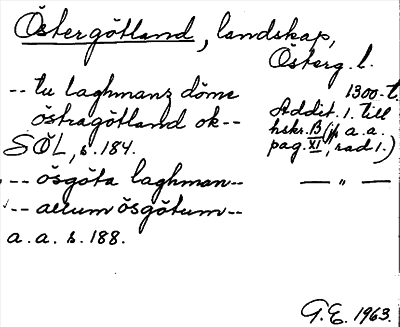 Östergötland, landskap,
Österg. l.
-- tu laghmanz döme
östragötland ok --
SÖL, s. 184.
1300-t.
Addit. 1. till
hskr. B (jfr a.a.
pag. XI, rad 1.)
-- ösgöta laghman -- — " —
-- allum ösgötum --
a.a. s. 188.
G.E. 1963.